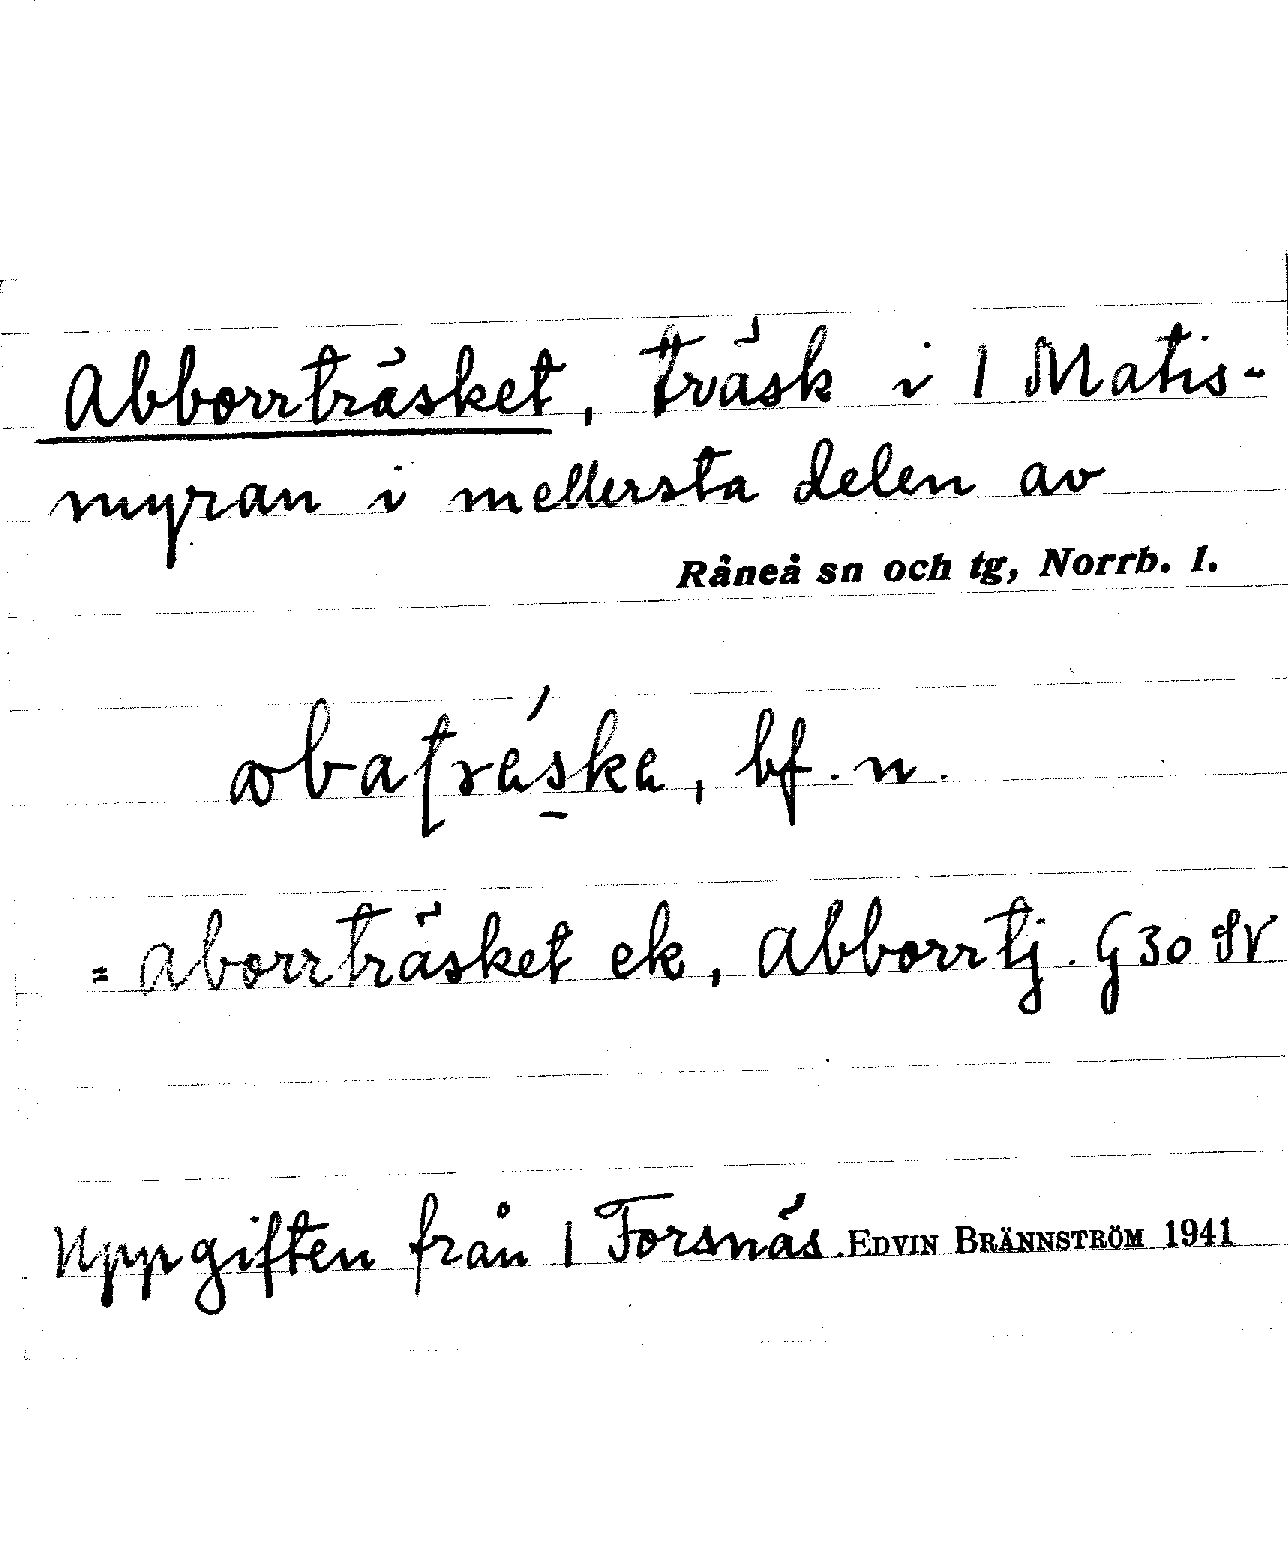 Abborrträsket, träsk i 1 Matis-
myran i mellersta delen av
Råneå sn och tg, Norrb. l.
abatráska, bf. n.
= Aborrträsket ek, Abborrtj. G30 SV
Uppgiften från 1 Forsnäs. EDVIN BRÄNNSTRÖM 1941